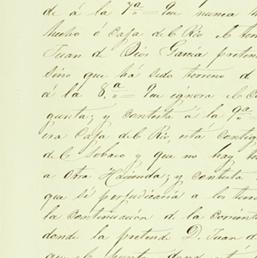 de á la 7ª = Que nunca h
hecho ó Casa del Rio el ten
Juan de Dios Garcia preten
dino que há sido terreno d
á la 8.ª = Que ignora el Co
gunta; y contesta á la 9ª
era Casa del Rio, está contig
de C. Lobaro y que no hay
a otra Hacienda; y contesta
que sí perjudicaria á los ten
la continuacion de la corrient
donde la pretende D. Juan d